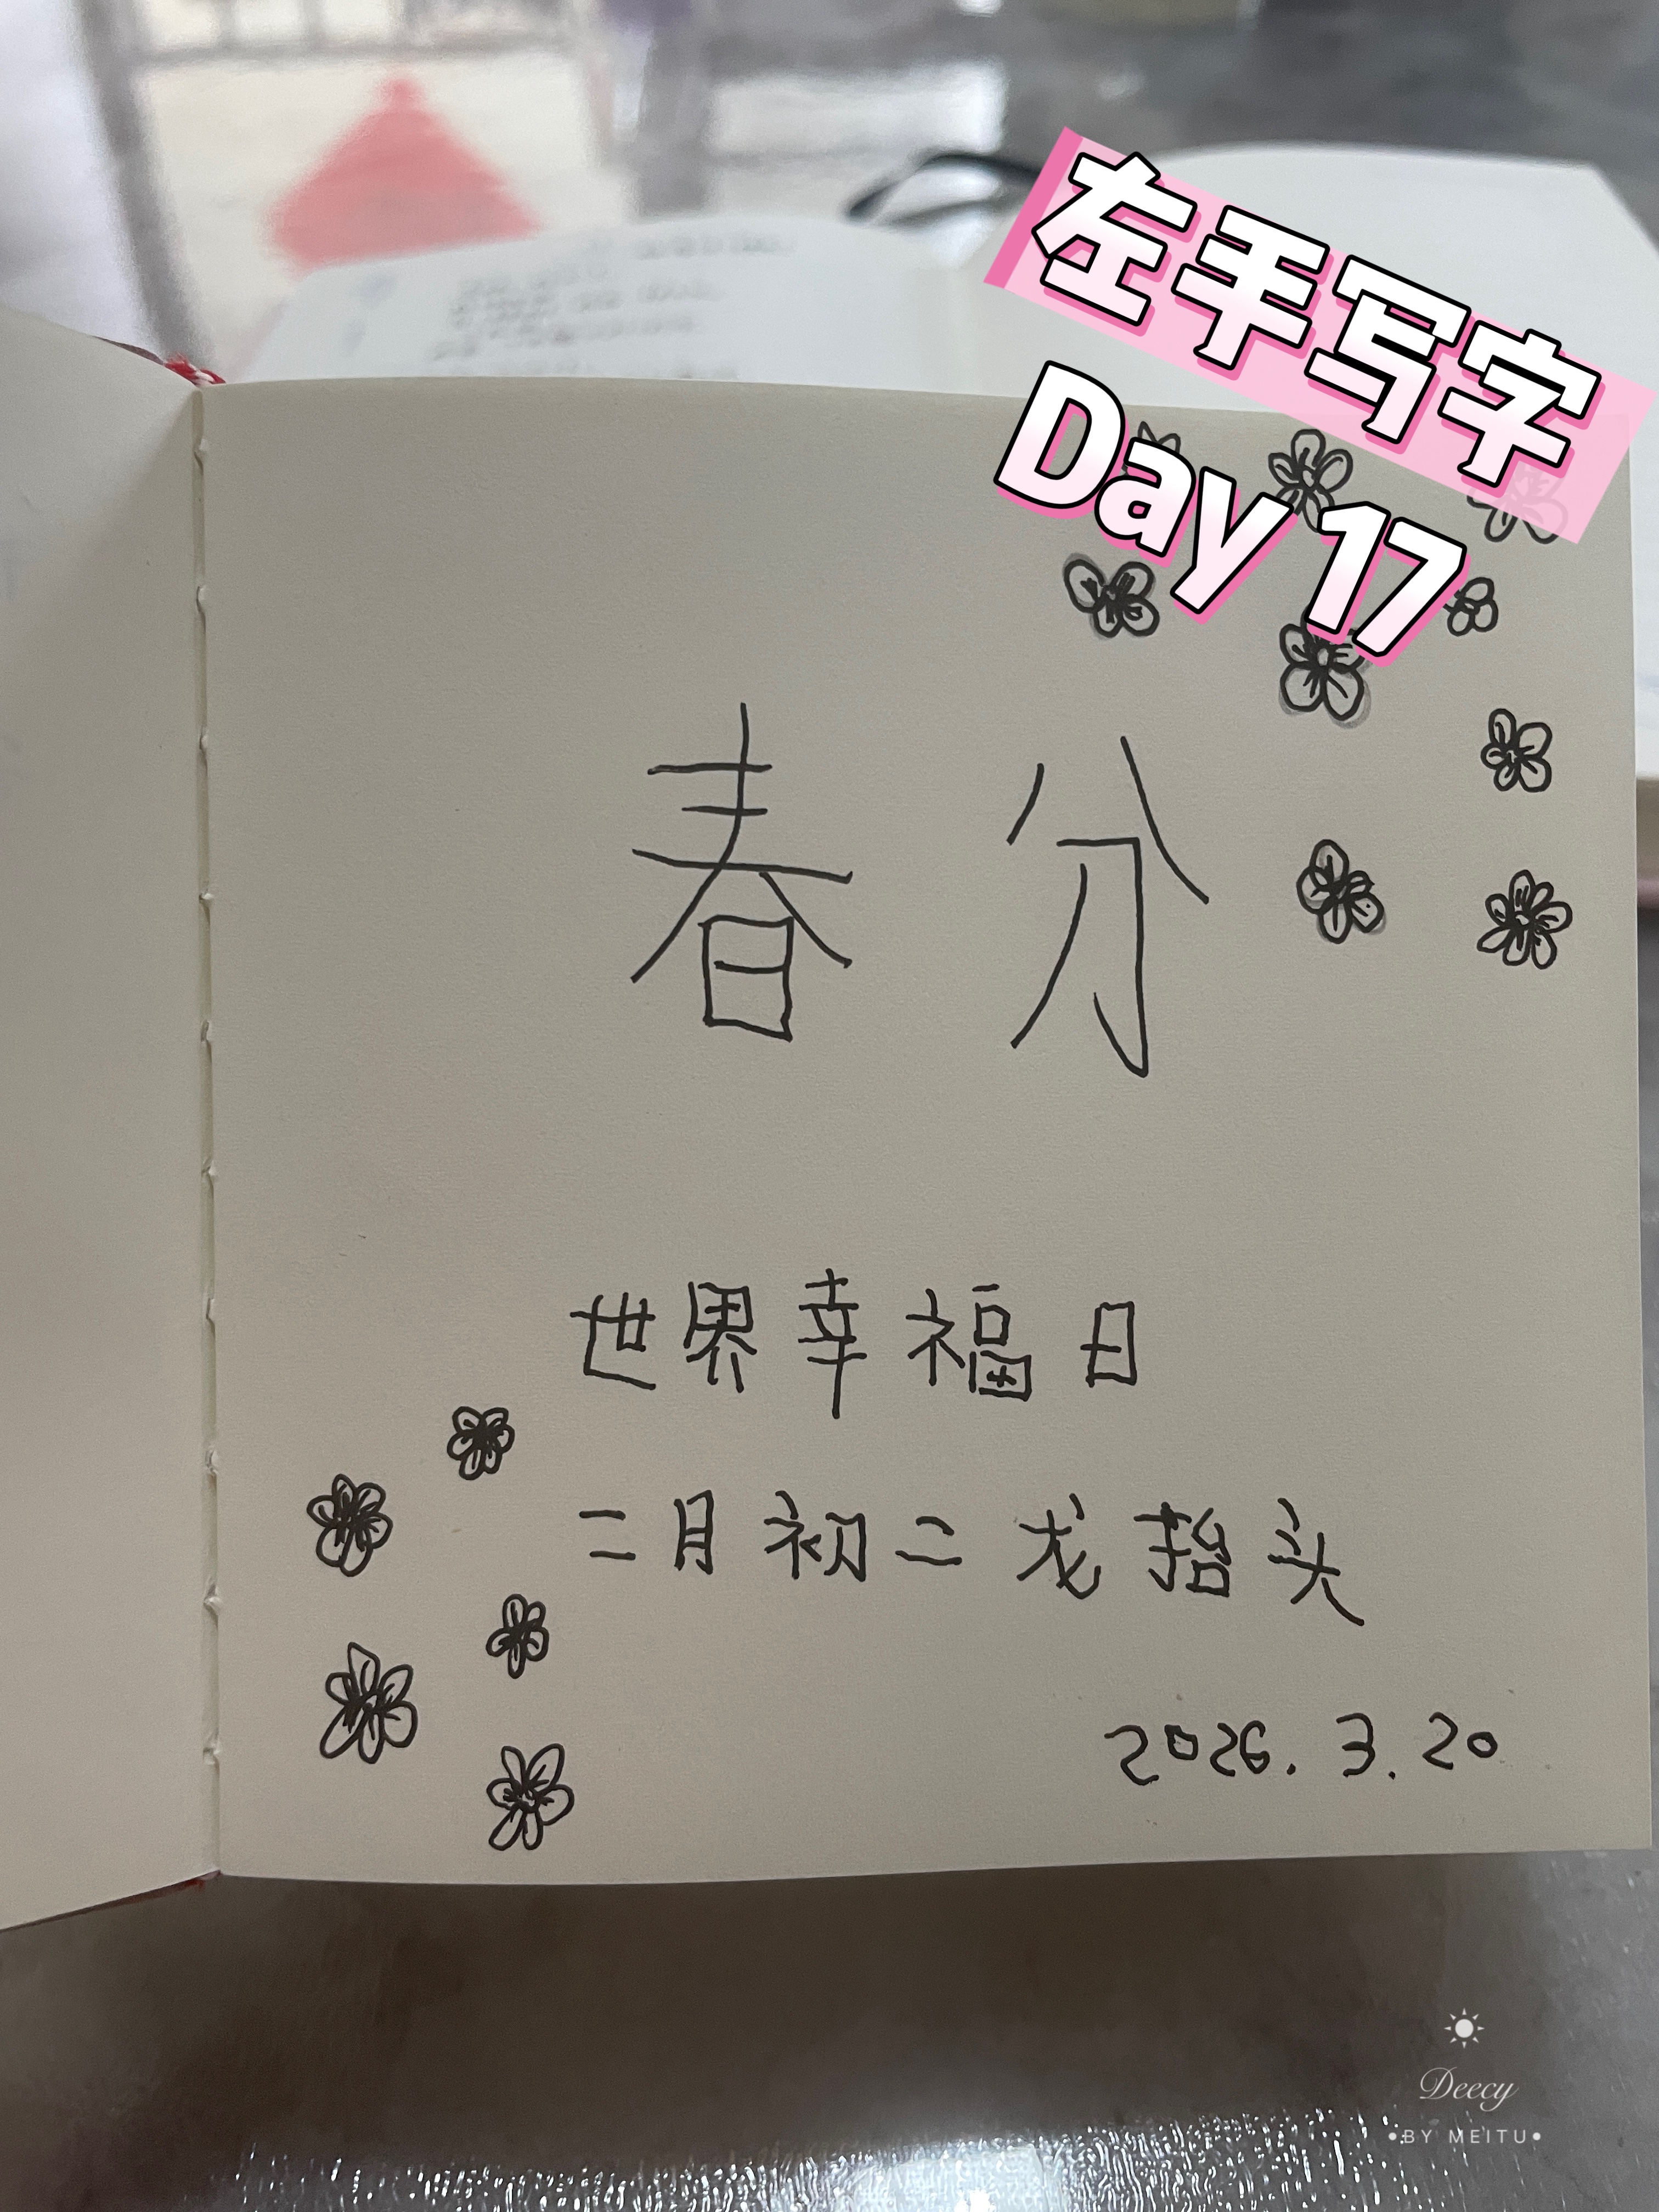 左手写字
Day 17
春分
世界幸福日
二月初二龙抬头
2026.3.20
Deecy
BY MEITU